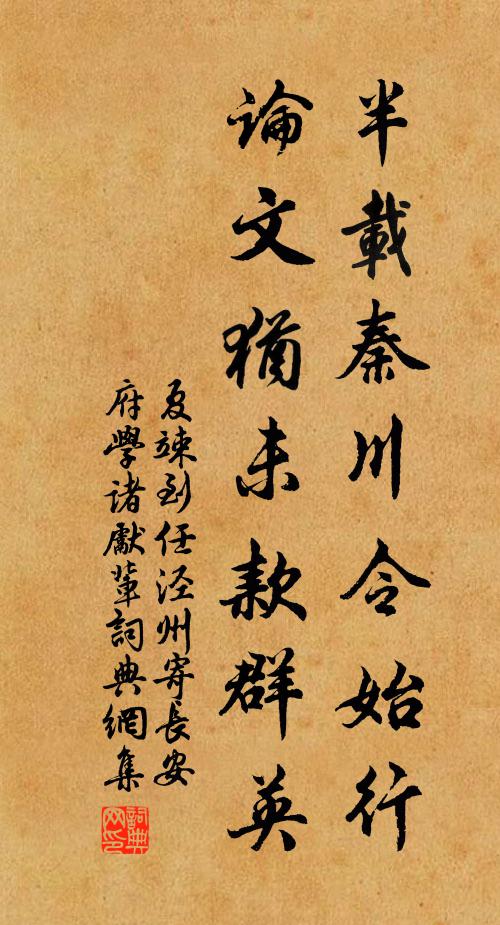 半載秦川令始行
論文猶未款群英
夏竦到任涇州寄長安
府學諸獻輩詞典網集
詞典
网印